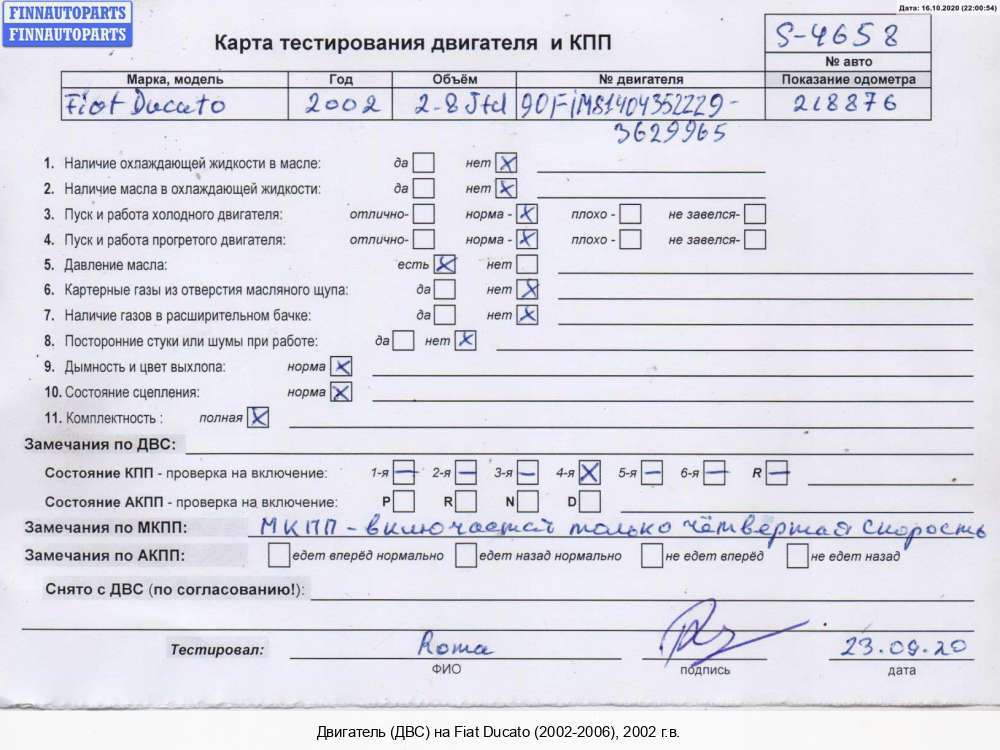 FINNAUTOPARTS
FINNAUTOPARTS
Дата: 16.10.2020 (22:00:54)
Карта тестирования двигателя и КПП
S-4658
№ авто
Марка, модель Год Объём № двигателя Показание одометра
Fiat Ducato 2002 2.8 Jtd 90FiM81404352229- 218876
3629965
1. Наличие охлаждающей жидкости в масле: да нет X
2. Наличие масла в охлаждающей жидкости: да нет X
3. Пуск и работа холодного двигателя: отлично- норма - X плохо - не завелся-
4. Пуск и работа прогретого двигателя: отлично- норма - X плохо - не завелся-
5. Давление масла: есть X нет
6. Картерные газы из отверстия масляного щупа: да нет X
7. Наличие газов в расширительном бачке: да нет X
8. Посторонние стуки или шумы при работе: да нет X
9. Дымность и цвет выхлопа: норма X
10. Состояние сцепления: норма X
11. Комплектность : полная X
Замечания по ДВС:
Состояние КПП - проверка на включение: 1-я — 2-я — 3-я — 4-я X 5-я — 6-я — R —
Состояние АКПП - проверка на включение: P R N D
Замечания по МКПП: МКПП - включается только чётвертая скорость
Замечания по АКПП: едет вперёд нормально едет назад нормально не едет вперёд не едет назад
Снято с ДВС (по согласованию!):
Тестировал: Roma 23.09.20
ФИО подпись дата
Двигатель (ДВС) на Fiat Ducato (2002-2006), 2002 г.в.